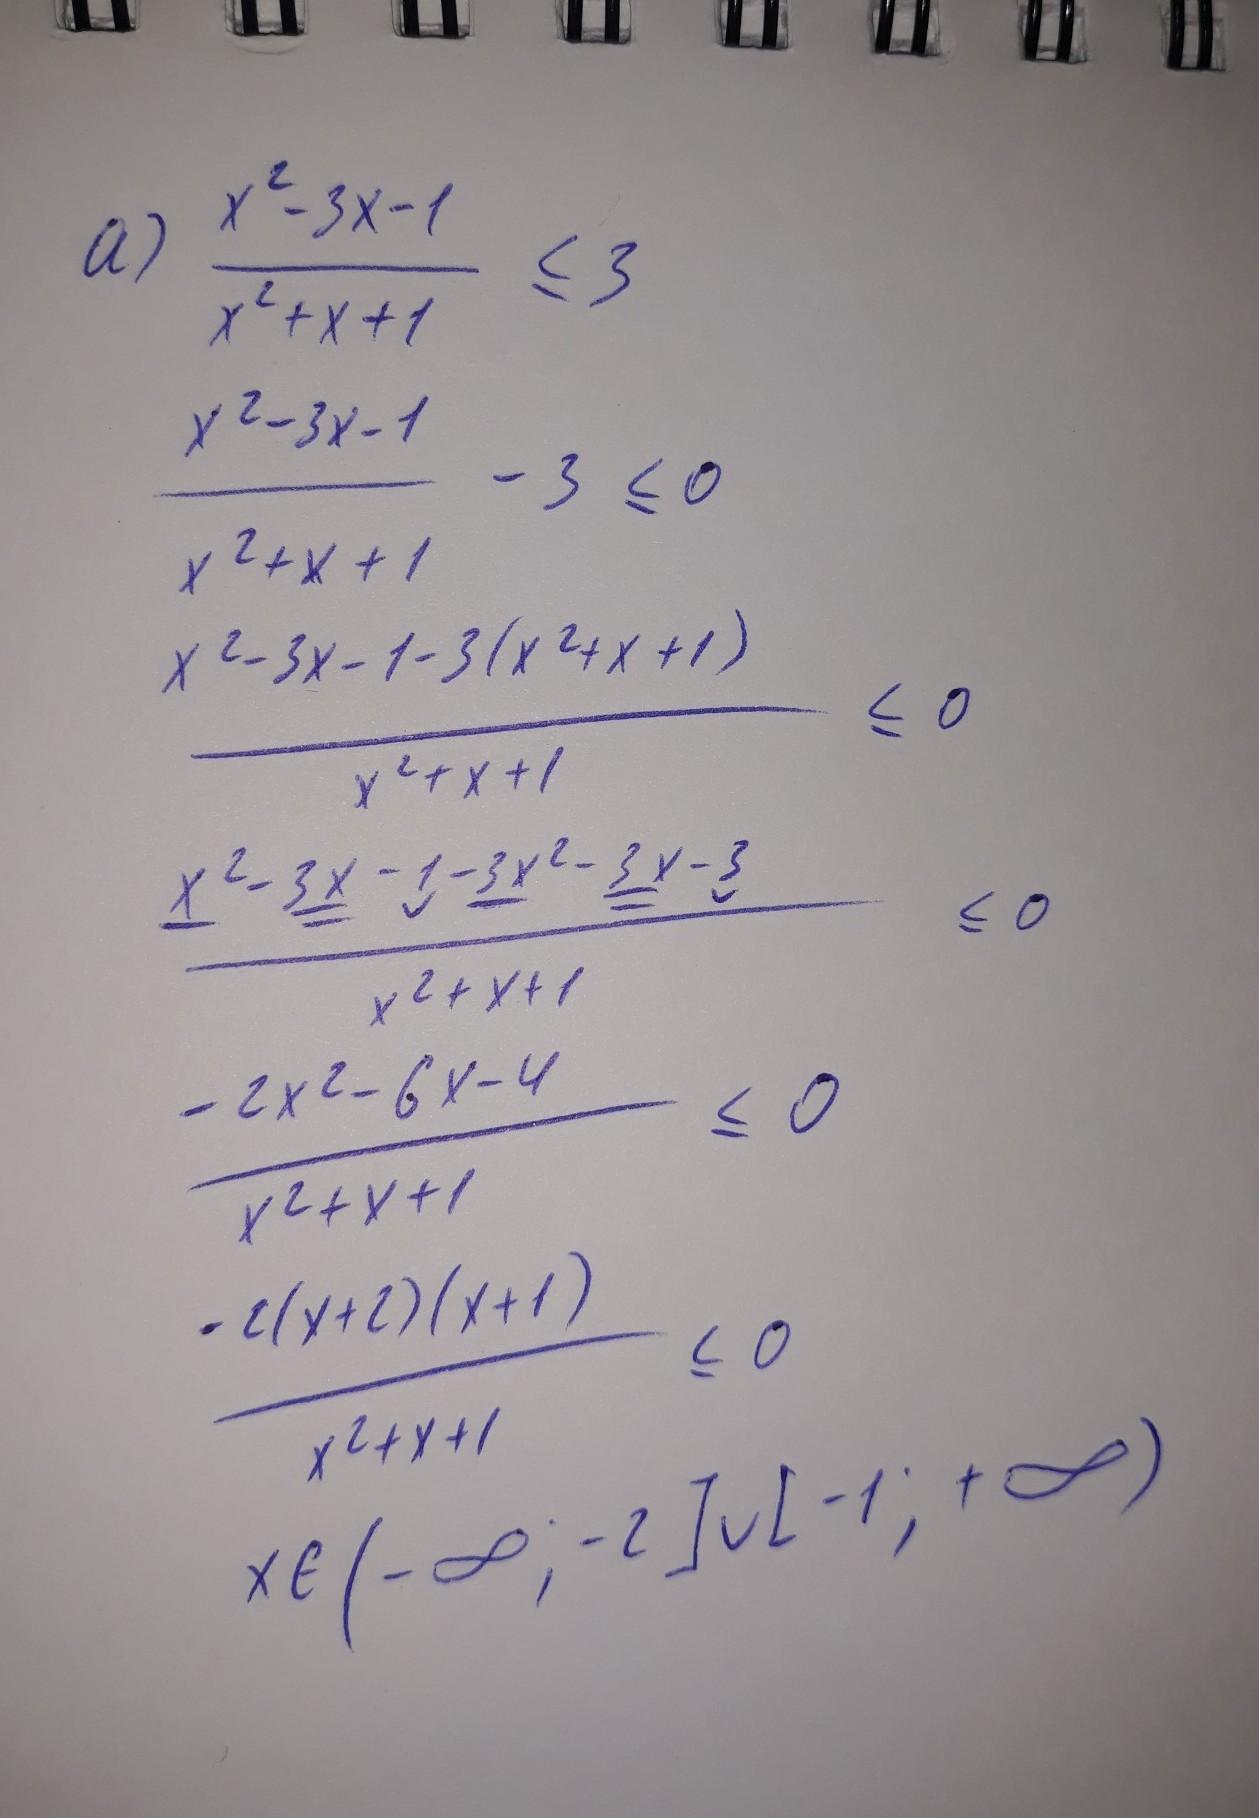 а) x²-3x-1 / x²+x+1 ≤ 3
x²-3x-1 / x²+x+1 - 3 ≤ 0
x²-3x-1-3(x²+x+1) / x²+x+1 ≤ 0
x²-3x-1-3x²-3x-3 / x²+x+1 ≤ 0
-2x²-6x-4 / x²+x+1 ≤ 0
-2(x+2)(x+1) / x²+x+1 ≤ 0
x∈(-∞;-2]∪[-1;+∞)